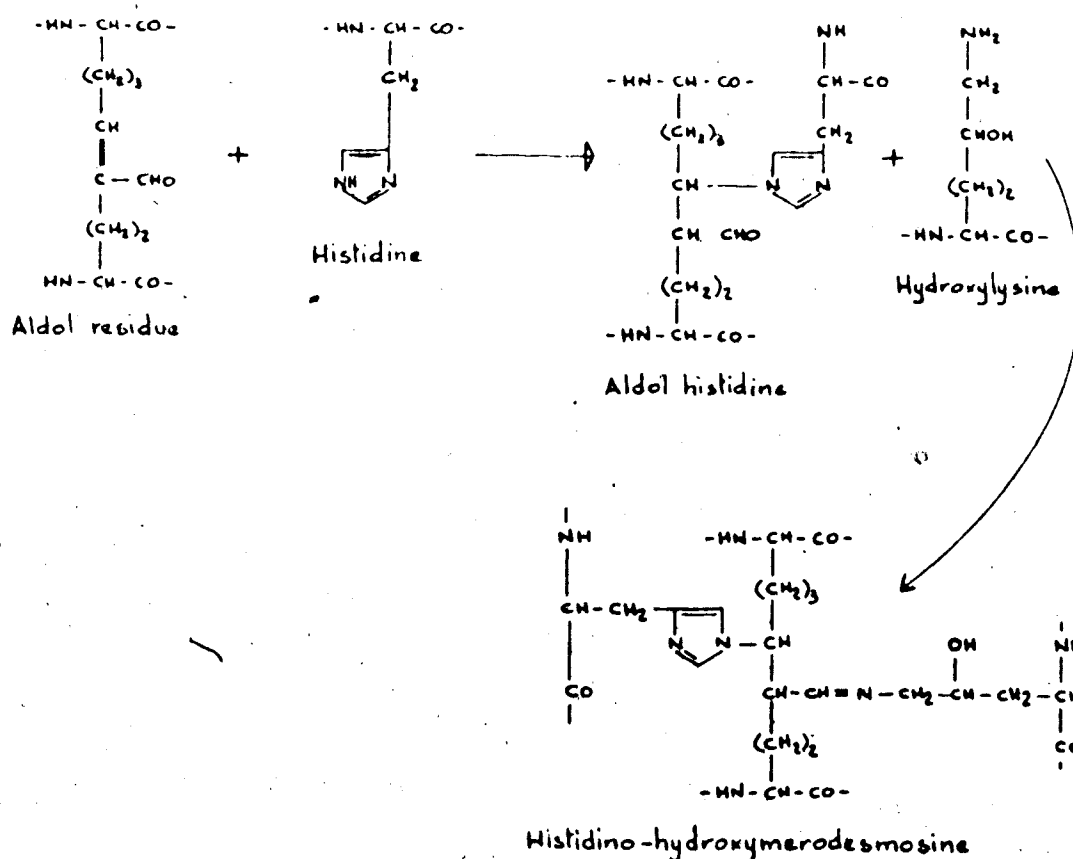 -HN-CH-CO-
(CH2)3
CH
C-CHO
(CH2)2
HN-CH-CO-
Aldol residue
+
-HN-CH-CO-
CH2
NH N
Histidine
-HN-CH-CO-
(CH2)3
CH
CH CHO
(CH2)2
-HN-CH-CO-
NH
CH-CO
CH2
N N
Aldol histidine
+
NH2
CH2
CHOH
(CH2)2
-HN-CH-CO-
Hydroxylysine
NH
CH-CH2
CO
N N
-HN-CH-CO-
(CH2)3
CH
OH
CH-CH=N-CH2-CH-CH2-CH
(CH2)2
-HN-CH-CO-
Histidino-hydroxymerodesmosine